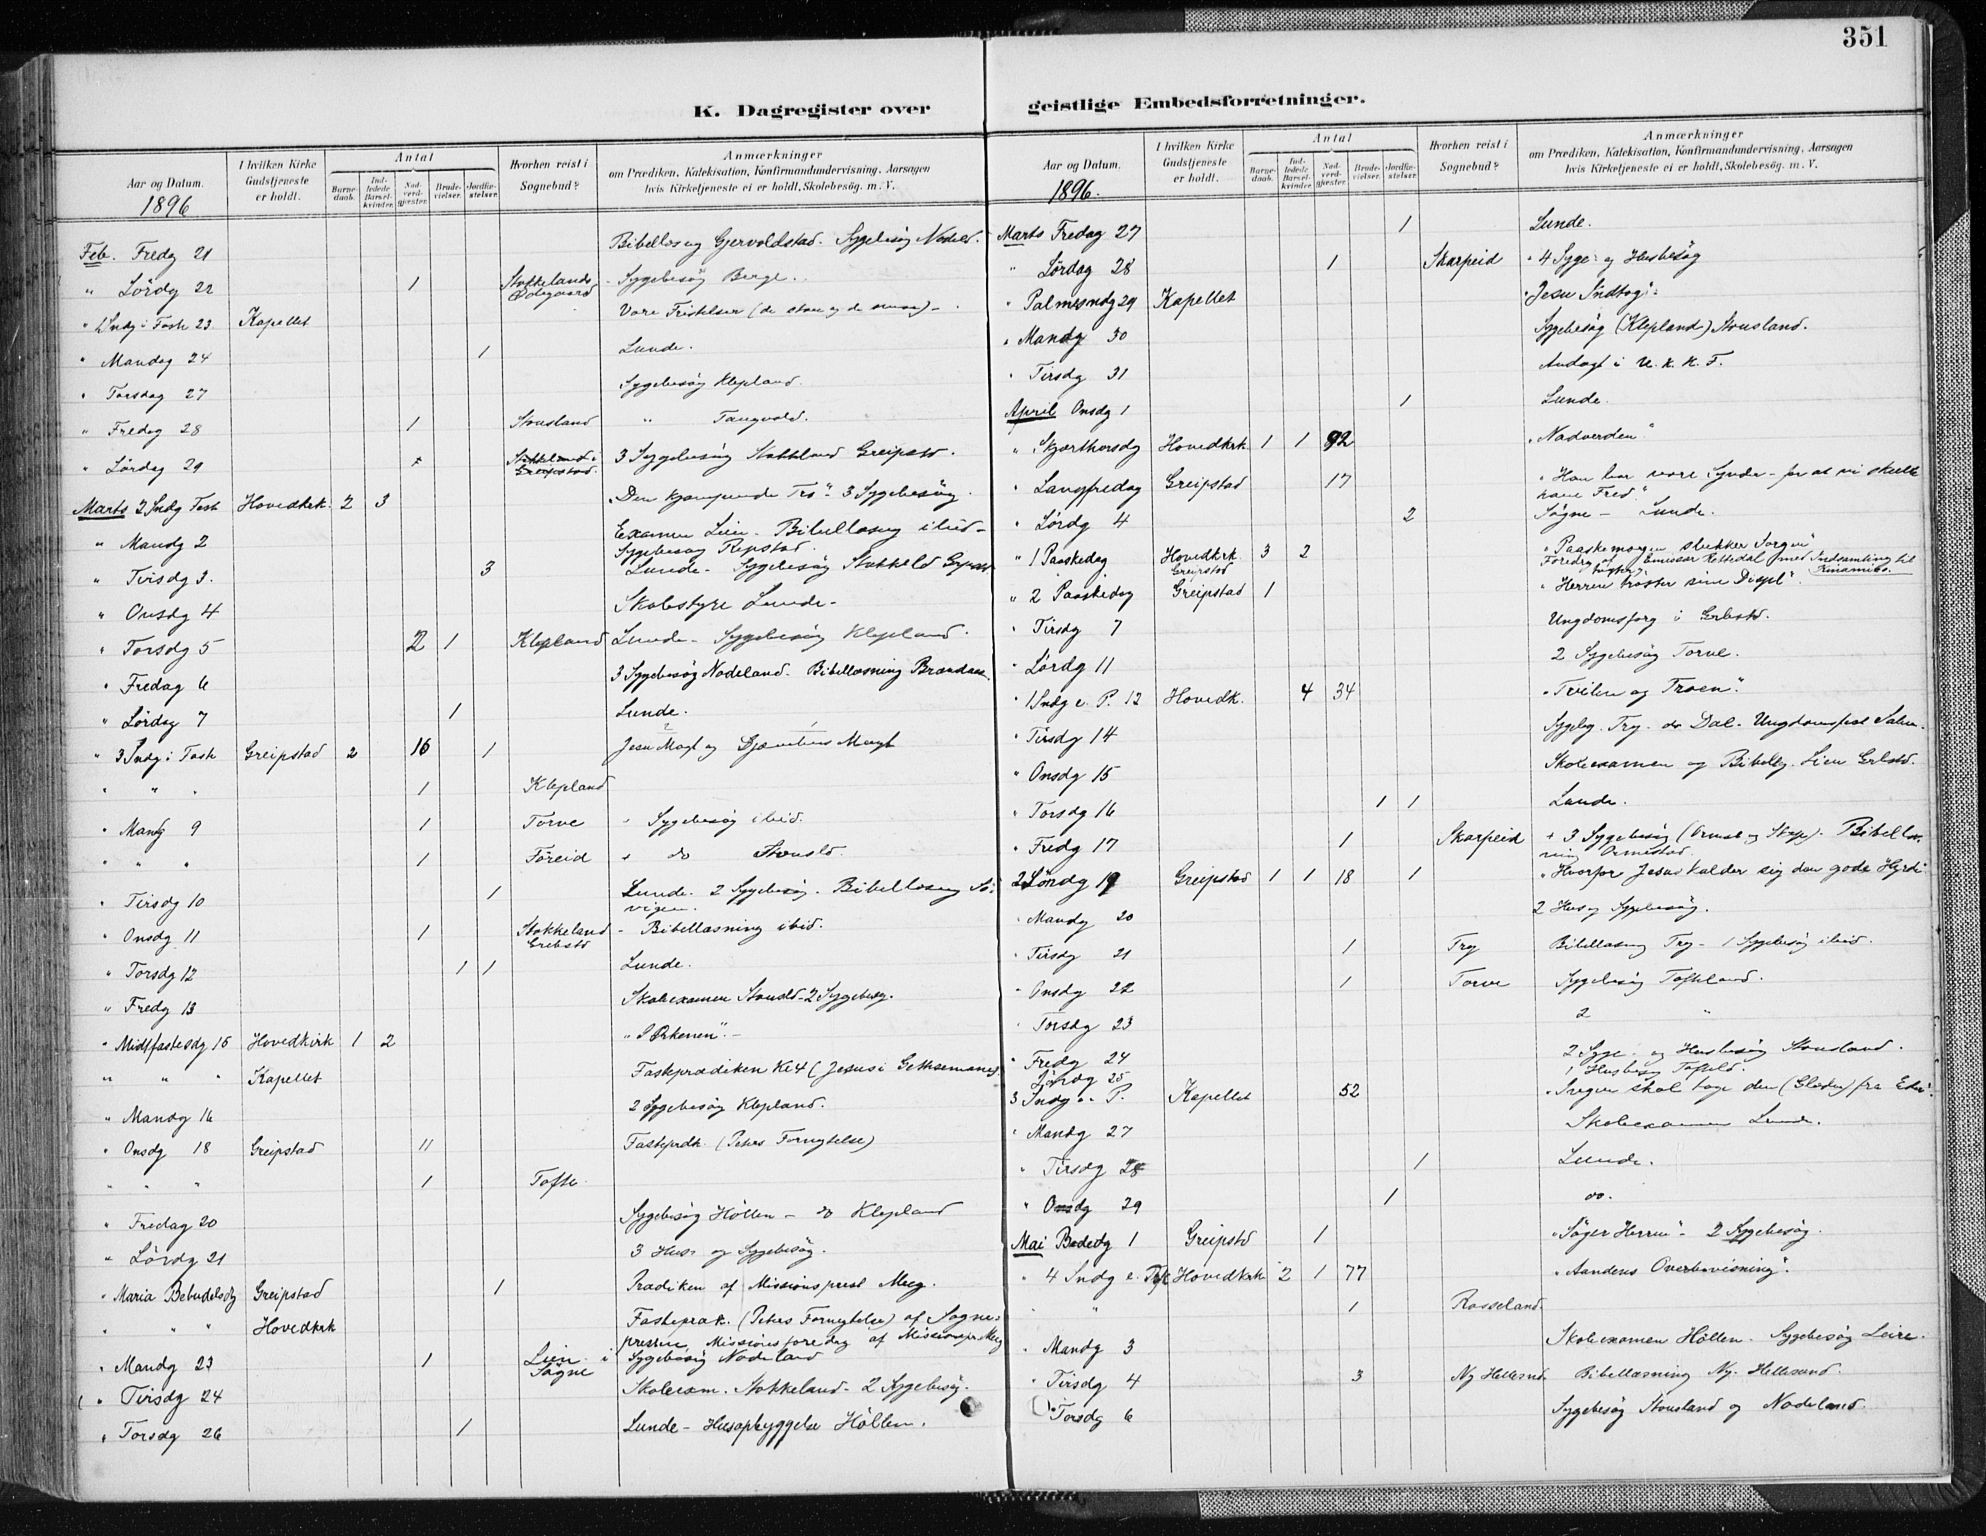 351
K. Dagregister over
Aar og Datum.
1896
I hvilken Kirke Gudstjeneste er holdt.
Antal
Barnedaab.
Indledede Barselkvinder.
Nadverdgjæster.
Brudevielser.
Jordfæstelser.
Hvorhen reist i Sognebud?
Anmærkninger
om Prædiken, Katekisation, Konfirmandundervisning, Aarsagen
hvis Kirketjeneste ei er holdt, Skolebesøg. m. V.
Feb. Fredg 21 Gjervoldstad. Sygebesög Nodeld.
" Lördg 22 1 Stokkelands Ödegaard - Sygebesög Berge.
" 1 Sndg i Fast 23 Kapellet Vore Fristelser (de store og de smaa) -
" Mandag 24 1 Lunde.
" Torsdag 27 Sygebesög Klepland.
" Fredag 28 1 Stousland " Tangvald.
" Lördag 29 Stokkeland i Greipstad 3 Sygebesög Stokkland Greipstd.
Marts 2 Sndg Fast Hovedkrk. 2 3 Den kjæmpende Tro" 3 Sygebesög.
" Mandg 2 Examen Lien - Bibellæsng ibid - Sygebesög Repstad.
" Tirsdg 3. 3 Lunde - Sygebesög Stokkeld
" Onsdg 4 Skolestyre Lunde -
" Torsdg 5 2 1 Klepland Lunde - Sygebesög Klepland.
" Fredag 6 3 Sygebesög Nodeland. Bibellæsning Brandaas.
" Lördag 7 1 Lunde.
" 3 Sndg i Fast Greipstad 2 16 1 Jesu Magt og Djævelens Magt
" " " 1 Klepland
" Mandg 9 1 Torve " Sygebesög ibid.
" " " 1 Föreid " do Stousld.
" Tirsdg 10 1 Lunde. 2 Sygebesög. Bibellæsng
" Onsdg 11 1 Stokkeland Grebstd - Bibellæsning ibid.
" Torsdg 12 1 1 Lunde.
" Fredg 13 Skoleexamen Stousld - 2 Sygebesög.
" Midtfastesdg 15 Hovedkirk 1 2 "I Örkenen". -
" " " Kapellet Fastepræediken Kl 4 (Jesus i Gethsemane).
" Mandg 16 2 Sygebesög Klepland.
" Onsdg 18 Greipstad 11 Fasteprdk. (Peters Fornegtelse)
" " " 1 Tofte.
" Fredag 20 Sygebesög Höllen - do Klepland
" Lördg 21 3 Hus og Sygebesög.
" Maria Bebudelsdg Greipstad 1 Prædiken af Missionsprest Meeg.
" " " Hovedkrk Fasteprœk. (Peters Fornegtelse) af Sognepresten Missionsforedrag af Missionspr. Meeg
" Mandg 23 1 Lien i Sögne Sygebesög Nodeland
" Tirsdg 24 Skoleexm. Stokkeland - 2 Sygebesög.
" Torsdg 26 1 Lunde - Husopbyggelse Höllen.
geistlige Embedsforretninger.
Aar og Datum.
1896.
I hvilken Kirke Gudstjeneste er holdt.
Antal
Barnedaab.
Indledede Barselkvinder.
Nadverdgjæster.
Brudevielser.
Jordfæstelser.
Hvorhen reist i Sognebud?
Anmærkninger
om Prædiken, Katekisation, Konfirmandundervisning, Aarsagen
hvis Kirketjeneste ei er holdt, Skolebesøg. m. V.
Marts Fredag 27 1 Lunde.
" Lördag 28 1 Skarpeid " 4 Syge- og Husbesög
" Palmesndg 29 Kapellet "Jesu Indtog".
" Mandg 30 Sygebesög (Klepland) Stousland.
" Tirsdg 31 Andagt i U. K. K. F.
April Onsdg 1 1 Lunde.
" Skjærthorsdg Hovedkrk 1 1 92 "Nadverden"
" Langfredag Greipstad 17 "Han bar vore Synder - for at vi skulle have Fred"
" Lördg 4 2 Sögne - Lunde.
" 1 Paaskedag Hovedkrk Greipstad 3 2 "Paaskemorgen slukker Sorgen" Foredrag af Emissær Rettedal med Indsamling til Kinamiss.
" 2 Paaskedag Greipstad 1 "Herren trøster sine Discpl".
" Tirsdg 7 Ungdomsforg i Grbstd.
" Lördg 11 2 Sygebesög Torve.
" 1 Sndg e. P. 12 Hovedk. 4 34 "Tvilen og Troen".
" Tirsdg 14 Try. do Dal - Ungdomsfest
" Onsdg 15 Skoleexamen og Lien Grbstd.
" Torsdg 16 1 1 Lunde.
" Fredg 17 1 Skarpeid + 3 Sygebesög Bibellæsning Ormestad.
2 Söndg 19 Greipstad 1 1 18 1 "Hvorfor Jesus kalder sig den gode Hyrde"
" Mandg 20 2 Hus og Sygebesög.
" Tirsdg 21 1 Try Bibellæsng Try - 1 Sygebesög ibid.
" Onsdg 22 1 Torve Sygebesög Tofteland.
" Torsdg 23 2 "
" Fredg 24 2 Syge- og Husbesög Stousland.
Lördg 25 1 Husbesög Tofteld.
3 Sndg e. P. Kapellet 52 "Ingen skal tage den (Glæden) fra Eder".
" Mandg 27 Skoleexamen Lunde.
" Tirsdg 28 1 Lunde.
" Onsdg 29 1 do.
Mai Bededg 1 Greipstd 1 "Söger Herren" - 2 Sygebesög.
" 4 Sndg e. Hovedkrk 2 1 77 "Aandens Overbevisning".
" " 1 Rosseland.
" Mandg 3 Skoleexamen Höllen. Sygebesög Leire.
" Tirsdg 4 3 Ny Hellesnd. Bibellæsning Ny Hellesund.
" Torsdg 6 Sygebesög Stousland og Nodeland.